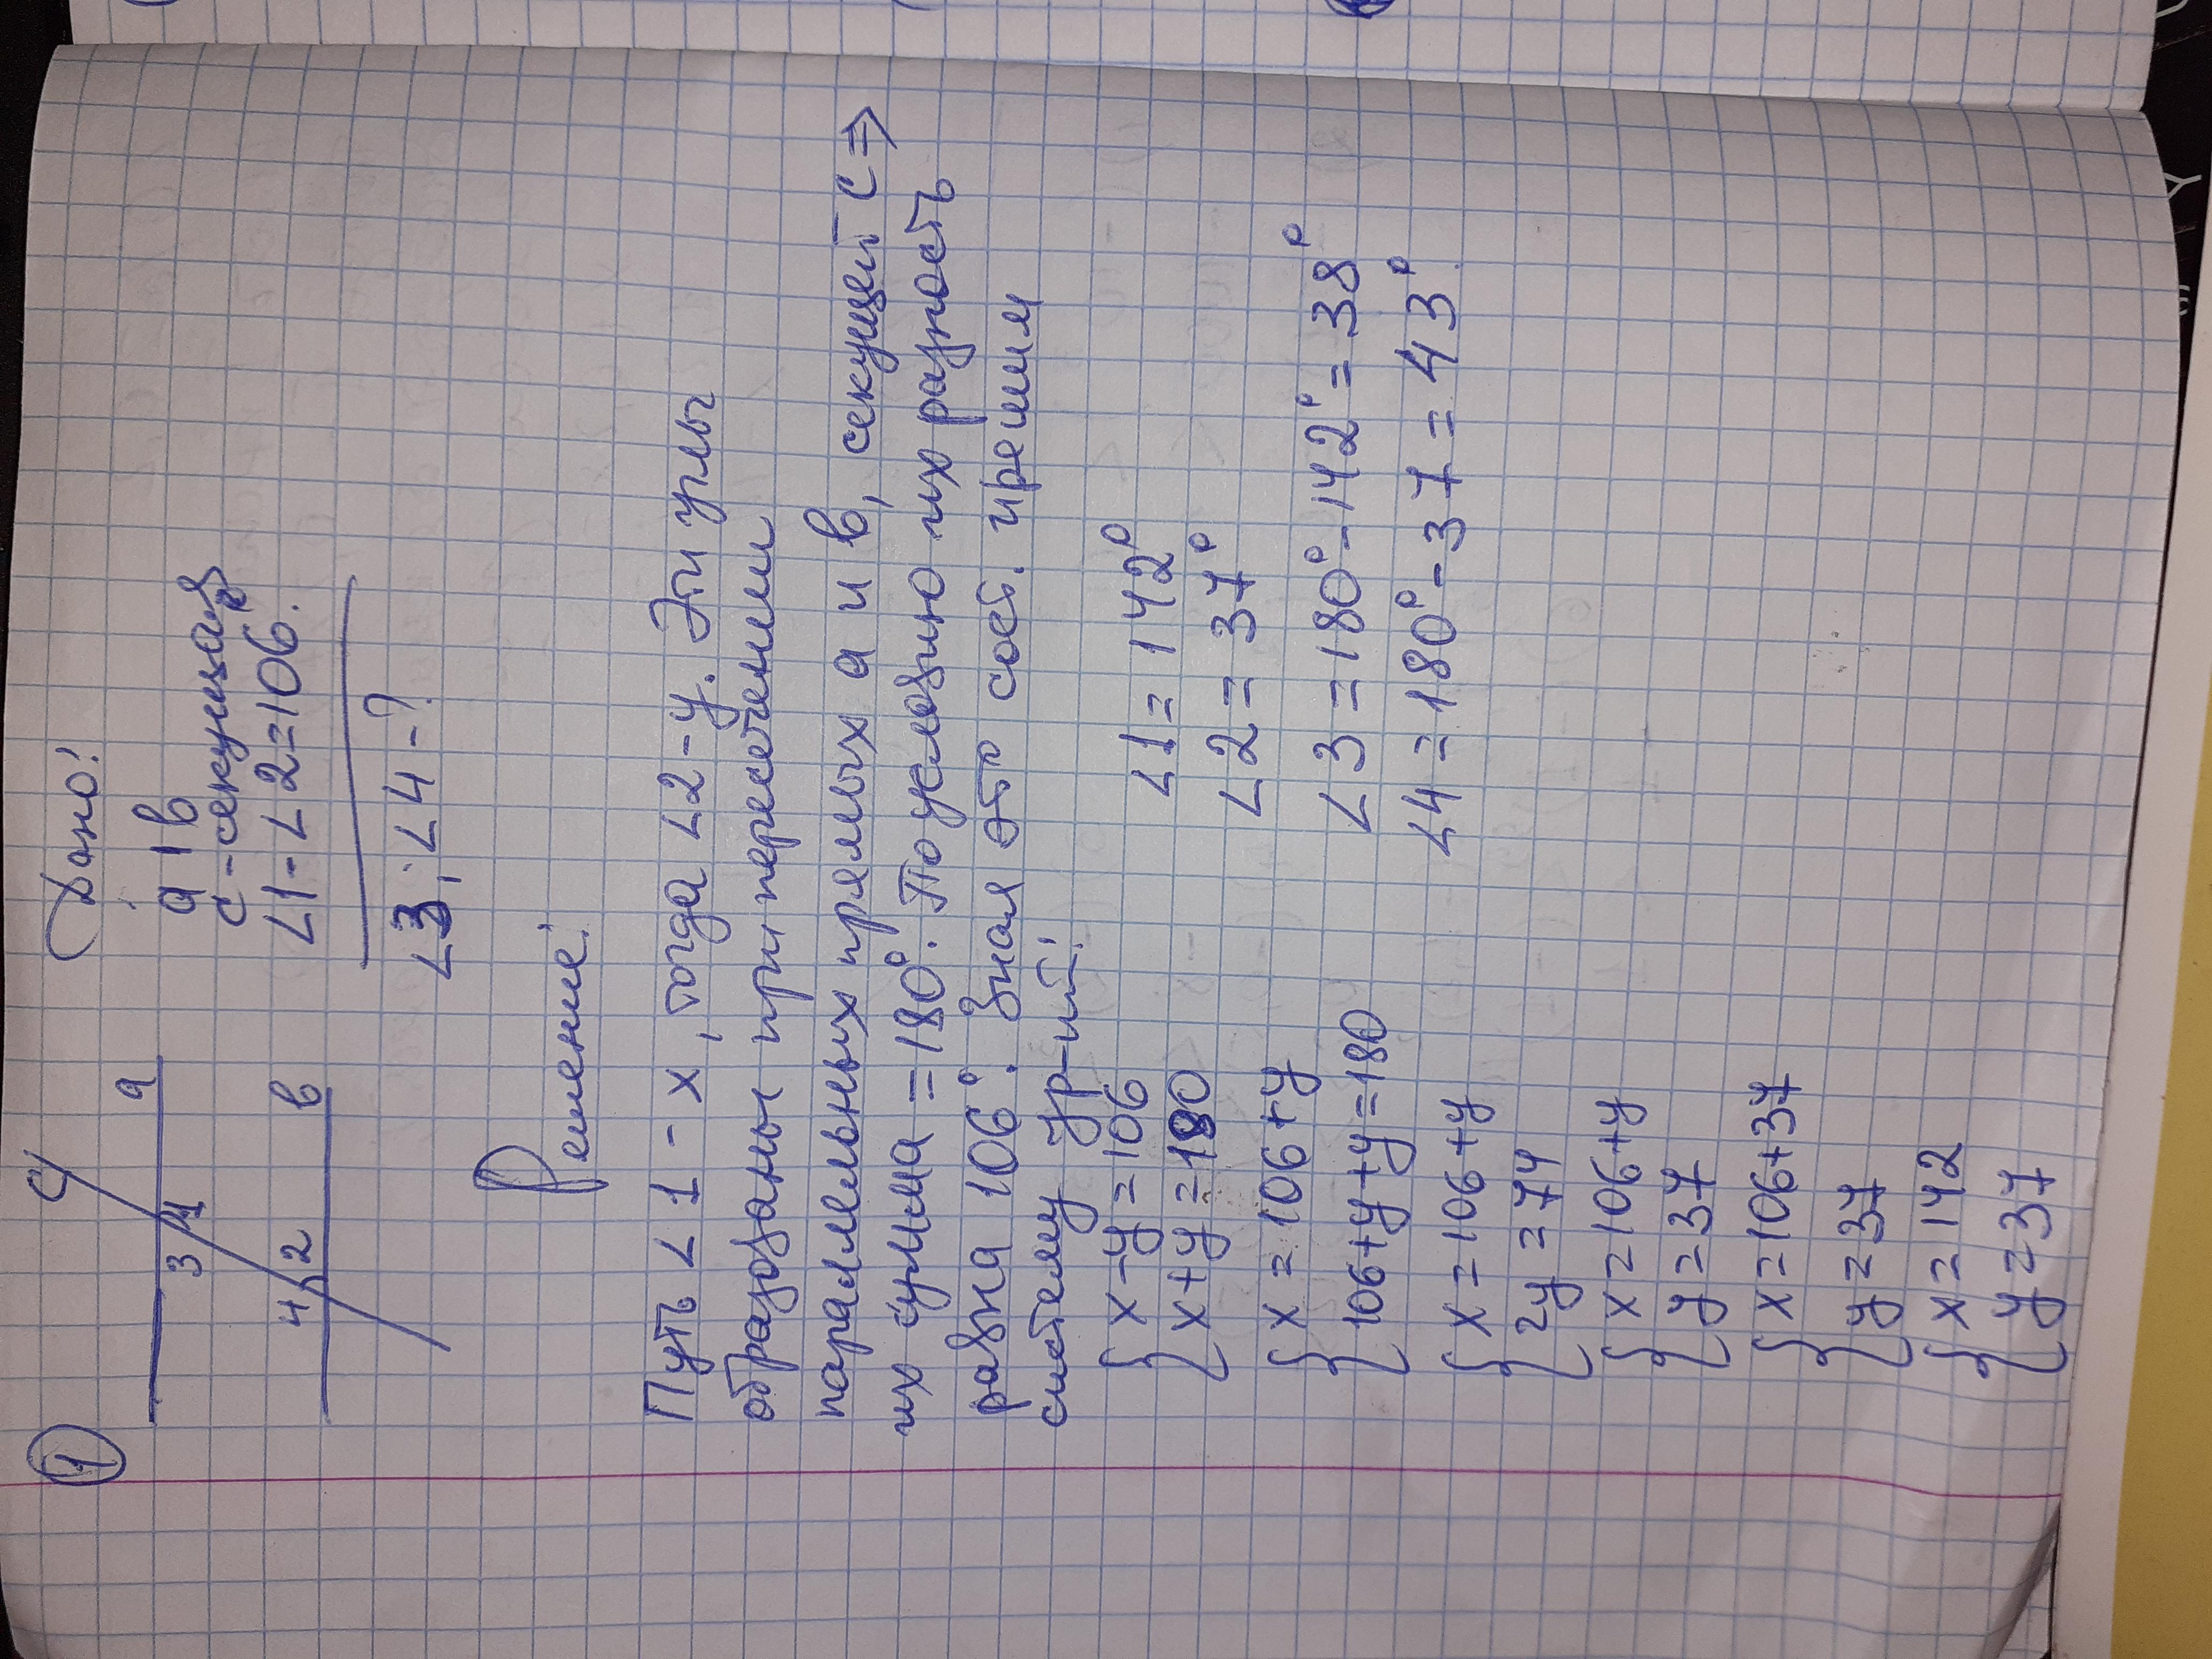 1
c
a
3 1
4 2
в
Дано:
a | в
c - секущая
∠1-∠2=106.
∠3; ∠4 - ?
Решение:
Пусть ∠1 - x, тогда ∠2 - y. Эти углы
образованы при пересечении
параллельных прямых a и в, секущей c ⇒
их сумма = 180°. По условию их разность
равна 106°. Зная это сост. и решим
систему ур-ий:
{ x - y = 106
{ x + y = 180
{ x = 106 + y
{ 106 + y + y = 180
{ x = 106 + y
{ 2y = 74
{ x = 106 + y
{ y = 37
{ x = 106 + 37
{ y = 37
{ x = 142
{ y = 37
∠1 = 142°
∠2 = 37°
∠3 = 180° - 142° = 38°
∠4 = 180° - 37 = 43°